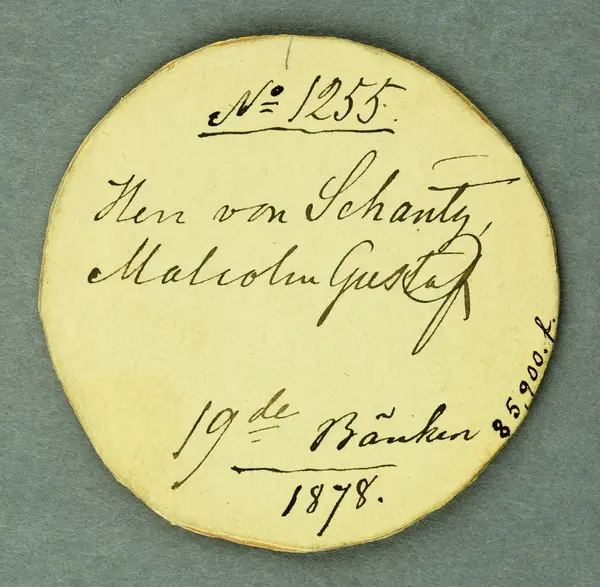 No 1255.
Herr von Schantz,
Malcolm Gustaf
19de Bänken
1878.
85,900.f.